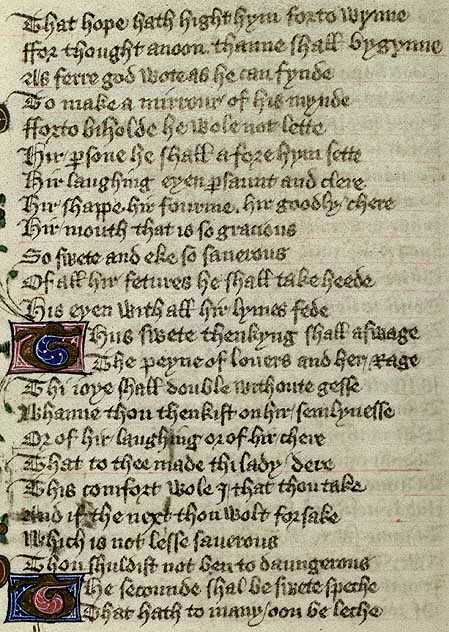 That hope hath hight hym forto wynne
ffor thought anoon thanne shall bygynne
As ferre god wote as he can fynde
To make a mirrour of his mynde
fforto biholde he wole not lette
Hir ꝑsone he shall a fore hym sette
Hir laughing eyen ꝑsaunt and clere
Hir shappe hir fourme hir goodly chere
Hir mouth that is so gracious
So swete and eke so sauerous
Of all hir fetures he shall take heede
His eyen with all hir lymes fede
Thus swete thenkyng shall aswage
The peyne of louers and her rage
Thi ioye shall double withoute gesse
Whanne thou thenkist on hir semlynesse
Or of hir laughing or of hir chere
That to thee made thi lady dere
This comfort wole I that thou take
And if the next thou wolt forsake
Which is not lesse sauerous
Thou shuldist not ben to daungerous
The secounde shal be swete speche
That hath to many oon be leche